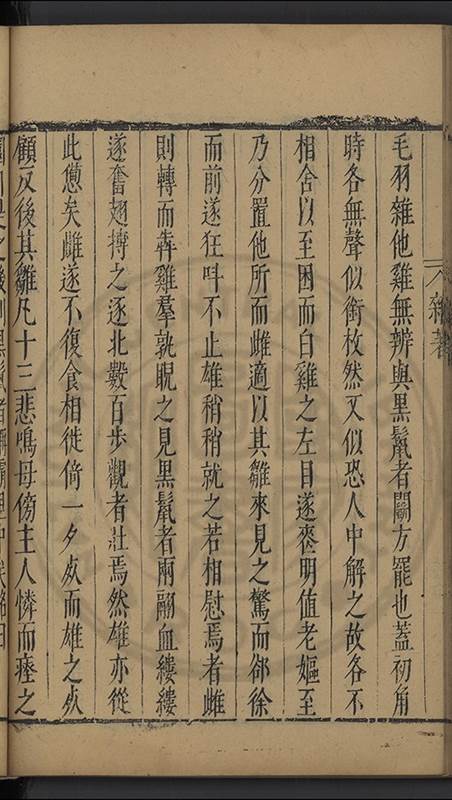 雜著
毛羽雜他雞無辨與黑鬣者鬭方罷也蓋初角
時各無聲似銜枚然又似恐人中解之故各不
相舍以至困而白雞之左目遂喪明值老嫗至
乃分置他所而雌適以其雛來見之驚而郤徐
而前遂狂呌不止雄稍稍就之若相慰焉者雌
則轉而犇雞羣孰睨之見黑鬣者兩翮血縷縷
遂奮翅搏之逐北數百歩觀者壯焉然雄亦從
此憊矣雌遂不復食相徙倚一夕死而雄之死
顧反後其雛凡十三悲鳴母傍主人憐而瘞之